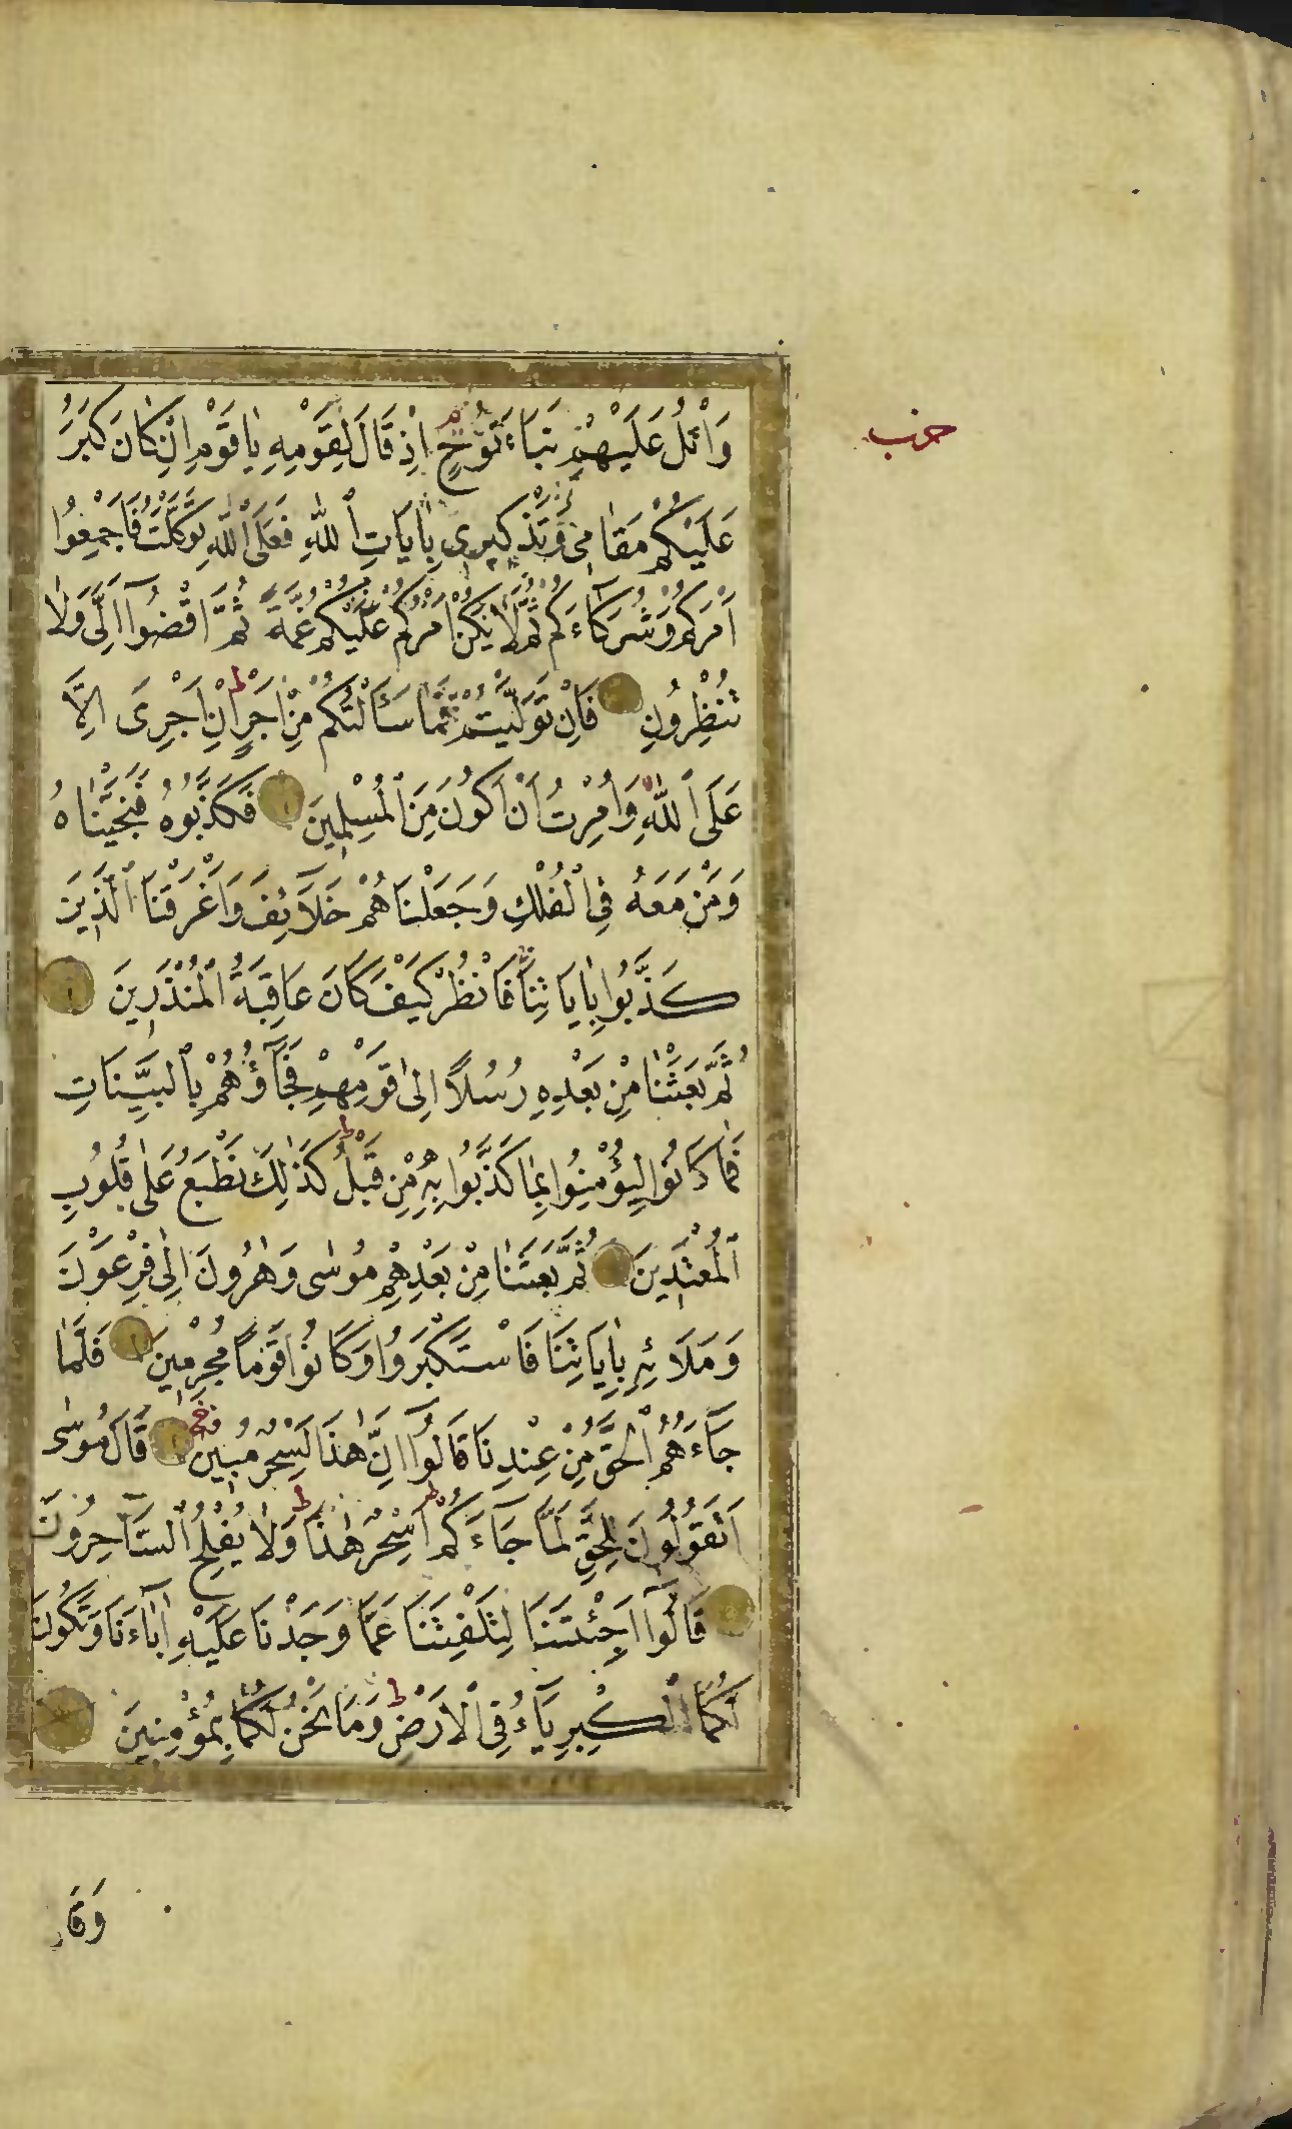 حزب
وَاتْلُ عَلَيْهِمْ نَبَاَ نُوحٍ اِذْ قَالَ لِقَوْمِهِ يَا قَوْمِ اِنْ كَانَ كَبُرَ
عَلَيْكُمْ مَقَامِى وَتَذْكِيرِى بِاٰيَاتِ اللّٰهِ فَعَلَى اللّٰهِ تَوَكَّلْتُ فَاَجْمِعُوا
اَمْرَكُمْ وَشُرَكَاءَكُمْ ثُمَّ لَا يَكُنْ اَمْرُكُمْ عَلَيْكُمْ غُمَّةً ثُمَّ اقْضُوا اِلَىَّ وَلَا
تُنْظِرُونِ فَاِنْ تَوَلَّيْتُمْ فَمَا سَئَاَلْتُكُمْ مِنْ اَجْرٍ ط اِنْ اَجْرِىَ اِلَّا
عَلَى اللّٰهِ وَاُمِرْتُ اَنْ اَكُونَ مِنَ الْمُسْلِمِينَ فَكَذَّبُوهُ فَنَجَّيْنَاهُ
وَمَنْ مَعَهُ فِى الْفُلْكِ وَجَعَلْنَاهُمْ خَلَآئِفَ وَاَغْرَقْنَا الَّذِينَ
كَذَّبُوا بِاٰيَاتِنَا فَانْظُرْ كَيْفَ كَانَ عَاقِبَةُ الْمُنْذَرِينَ
ثُمَّ بَعَثْنَا مِنْ بَعْدِهِ رُسُلًا اِلٰى قَوْمِهِمْ فَجَآؤُهُمْ بِالْبَيِّنَاتِ
فَمَا كَانُوا لِيُؤْمِنُوا بِمَا كَذَّبُوا بِهِ مِنْ قَبْلُ ط كَذٰلِكَ نَطْبَعُ عَلٰى قُلُوبِ
الْمُعْتَدِينَ ثُمَّ بَعَثْنَا مِنْ بَعْدِهِمْ مُوسٰى وَهٰرُونَ اِلٰى فِرْعَوْنَ
وَمَلَائِهِ بِاٰيَاتِنَا فَاسْتَكْبَرُوا وَكَانُوا قَوْمًا مُجْرِمِينَ فَلَمَّا
جَآءَهُمُ الْحَقُّ مِنْ عِنْدِنَا قَالُوا اِنَّ هٰذَا لَسِحْرٌ مُبِينٌ قَالَ مُوسٰى
اَتَقُولُونَ لِلْحَقِّ لَمَّا جَآءَكُمْ ط اَسِحْرٌ هٰذَا ط وَلَا يُفْلِحُ السَّاحِرُونَ
قَالُوا اَجِئْتَنَا لِتَلْفِتَنَا عَمَّا وَجَدْنَا عَلَيْهِ اٰبَآءَنَا وَتَكُونَ
لَكُمَا الْكِبْرِيَآءُ فِى الْاَرْضِ ط وَمَا نَحْنُ لَكُمَا بِمُؤْمِنِينَ
وَقَا